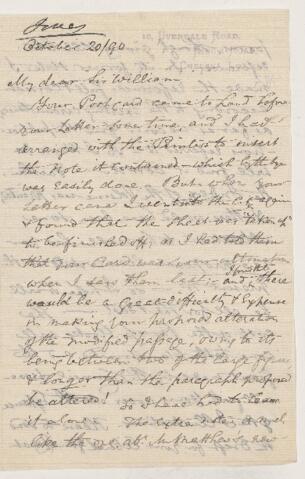 Jones
10, OVERDALE ROAD,
October 20/90
My dear Sir William
Your Postcard came to hand before
your Letter some time, and I had
arranged with the Printers to insert
the Note it contained – which
was easily done. But when your
letter came I went into the City again
& found that the sheet was
to be finished off, as I had told them
that your Card was your
when I saw them last: – and, there
would be a Great difficulty & Expense
in making your proposed alteration
of the modified passage, owing to its
being between two of the large figures,
& longer than the paragraph proposed
be altered! So I have had to leave
it alone. The extra notes
like the one abt. Matthew's new